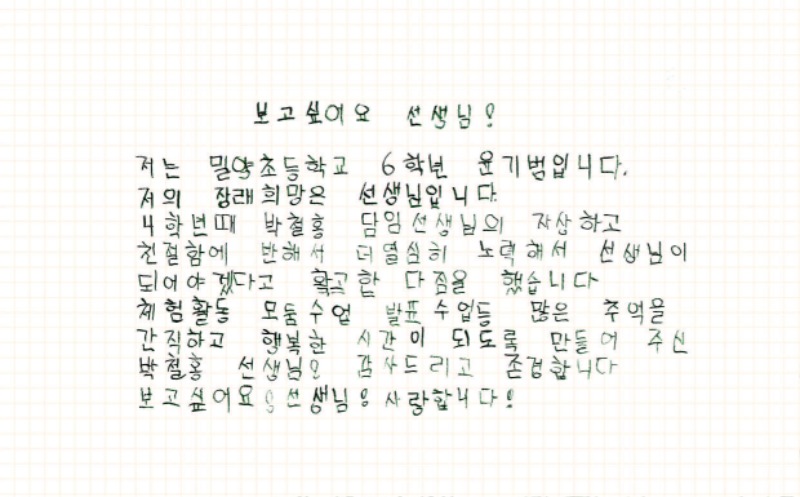 보고싶어요 선생님!
저는 밀양초등학교 6학년 윤기범입니다.
저의 장래희망은 선생님입니다.
4학년때 박철홍 담임선생님의 자상하고
친절함에 반해서 더열심히 노력해서 선생님이
되어야겠다고 확고한 다짐을 했습니다
체험활동 모둠수업 발표수업등 많은 추억을
간직하고 행복한 시간이 되도록 만들어 주신
박철홍 선생님! 감사드리고 존경합니다
보고싶어요! 선생님! 사랑합니다!